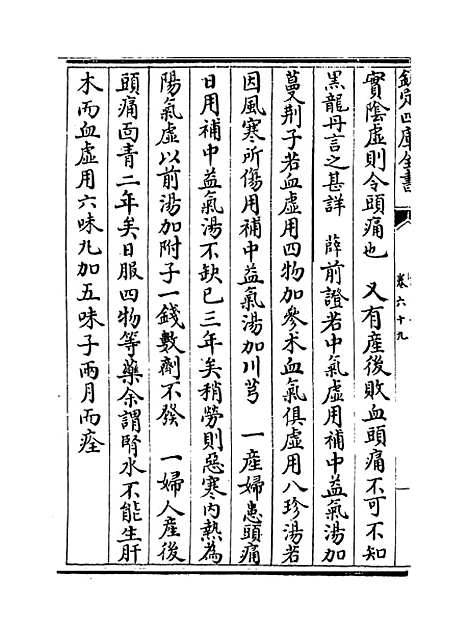 欽定四庫全書
卷六十九
實陰虛則令頭痛也　又有産後敗血頭痛不可不知
黑龍丹言之甚詳　薛前證若中氣虛用補中益氣湯加
蔓荆子若血虛用四物加參朮血氣俱虛用八珍湯若
因風寒所傷用補中益氣湯加川芎　一産婦患頭痛
日用補中益氣湯不缺已三年矣稍勞則惡寒内熱為
陽氣虛以前湯加附子一錢數劑不發　一婦人産後
頭痛面青二年矣日服四物等藥余謂腎水不能生肝
木而血虛用六味丸加五味子兩月而痊